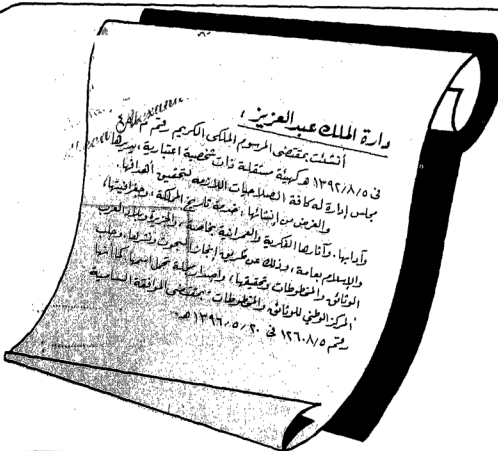 دارة الملك عبد العزيز :
أنشئت بمقتضى المرسوم الملكي الكريم رقم م/٤٥
في ١٣٩٢/٨/٥ هـ كهيئة مستقلة ذات شخصية اعتبارية ، يديرها
مجلس إدارة له كافة الصلاحيات اللازمة لتحقيق أهدافها .
والغرض من إنشائها ، خدمة تاريخ المملكة ، وجغرافيتها ،
وآدابها . وآثارها الفكرية والعمرانية بخاصة ، والجزيرة وبلاد العرب
والإسلام بعامة ، وذلك عن طريق إنجاز البحوث ونشرها ، وجلب
الوثائق والمخطوطات وتحقيقها ، وإصدار مجلة تحمل اسمها كما أنها
المركز الوطني للوثائق والمخطوطات بمقتضى الموافقة السامية
رقم ١٢٦٠٨/٥ في ١٣٩٦/٥/٢٠ هـ .